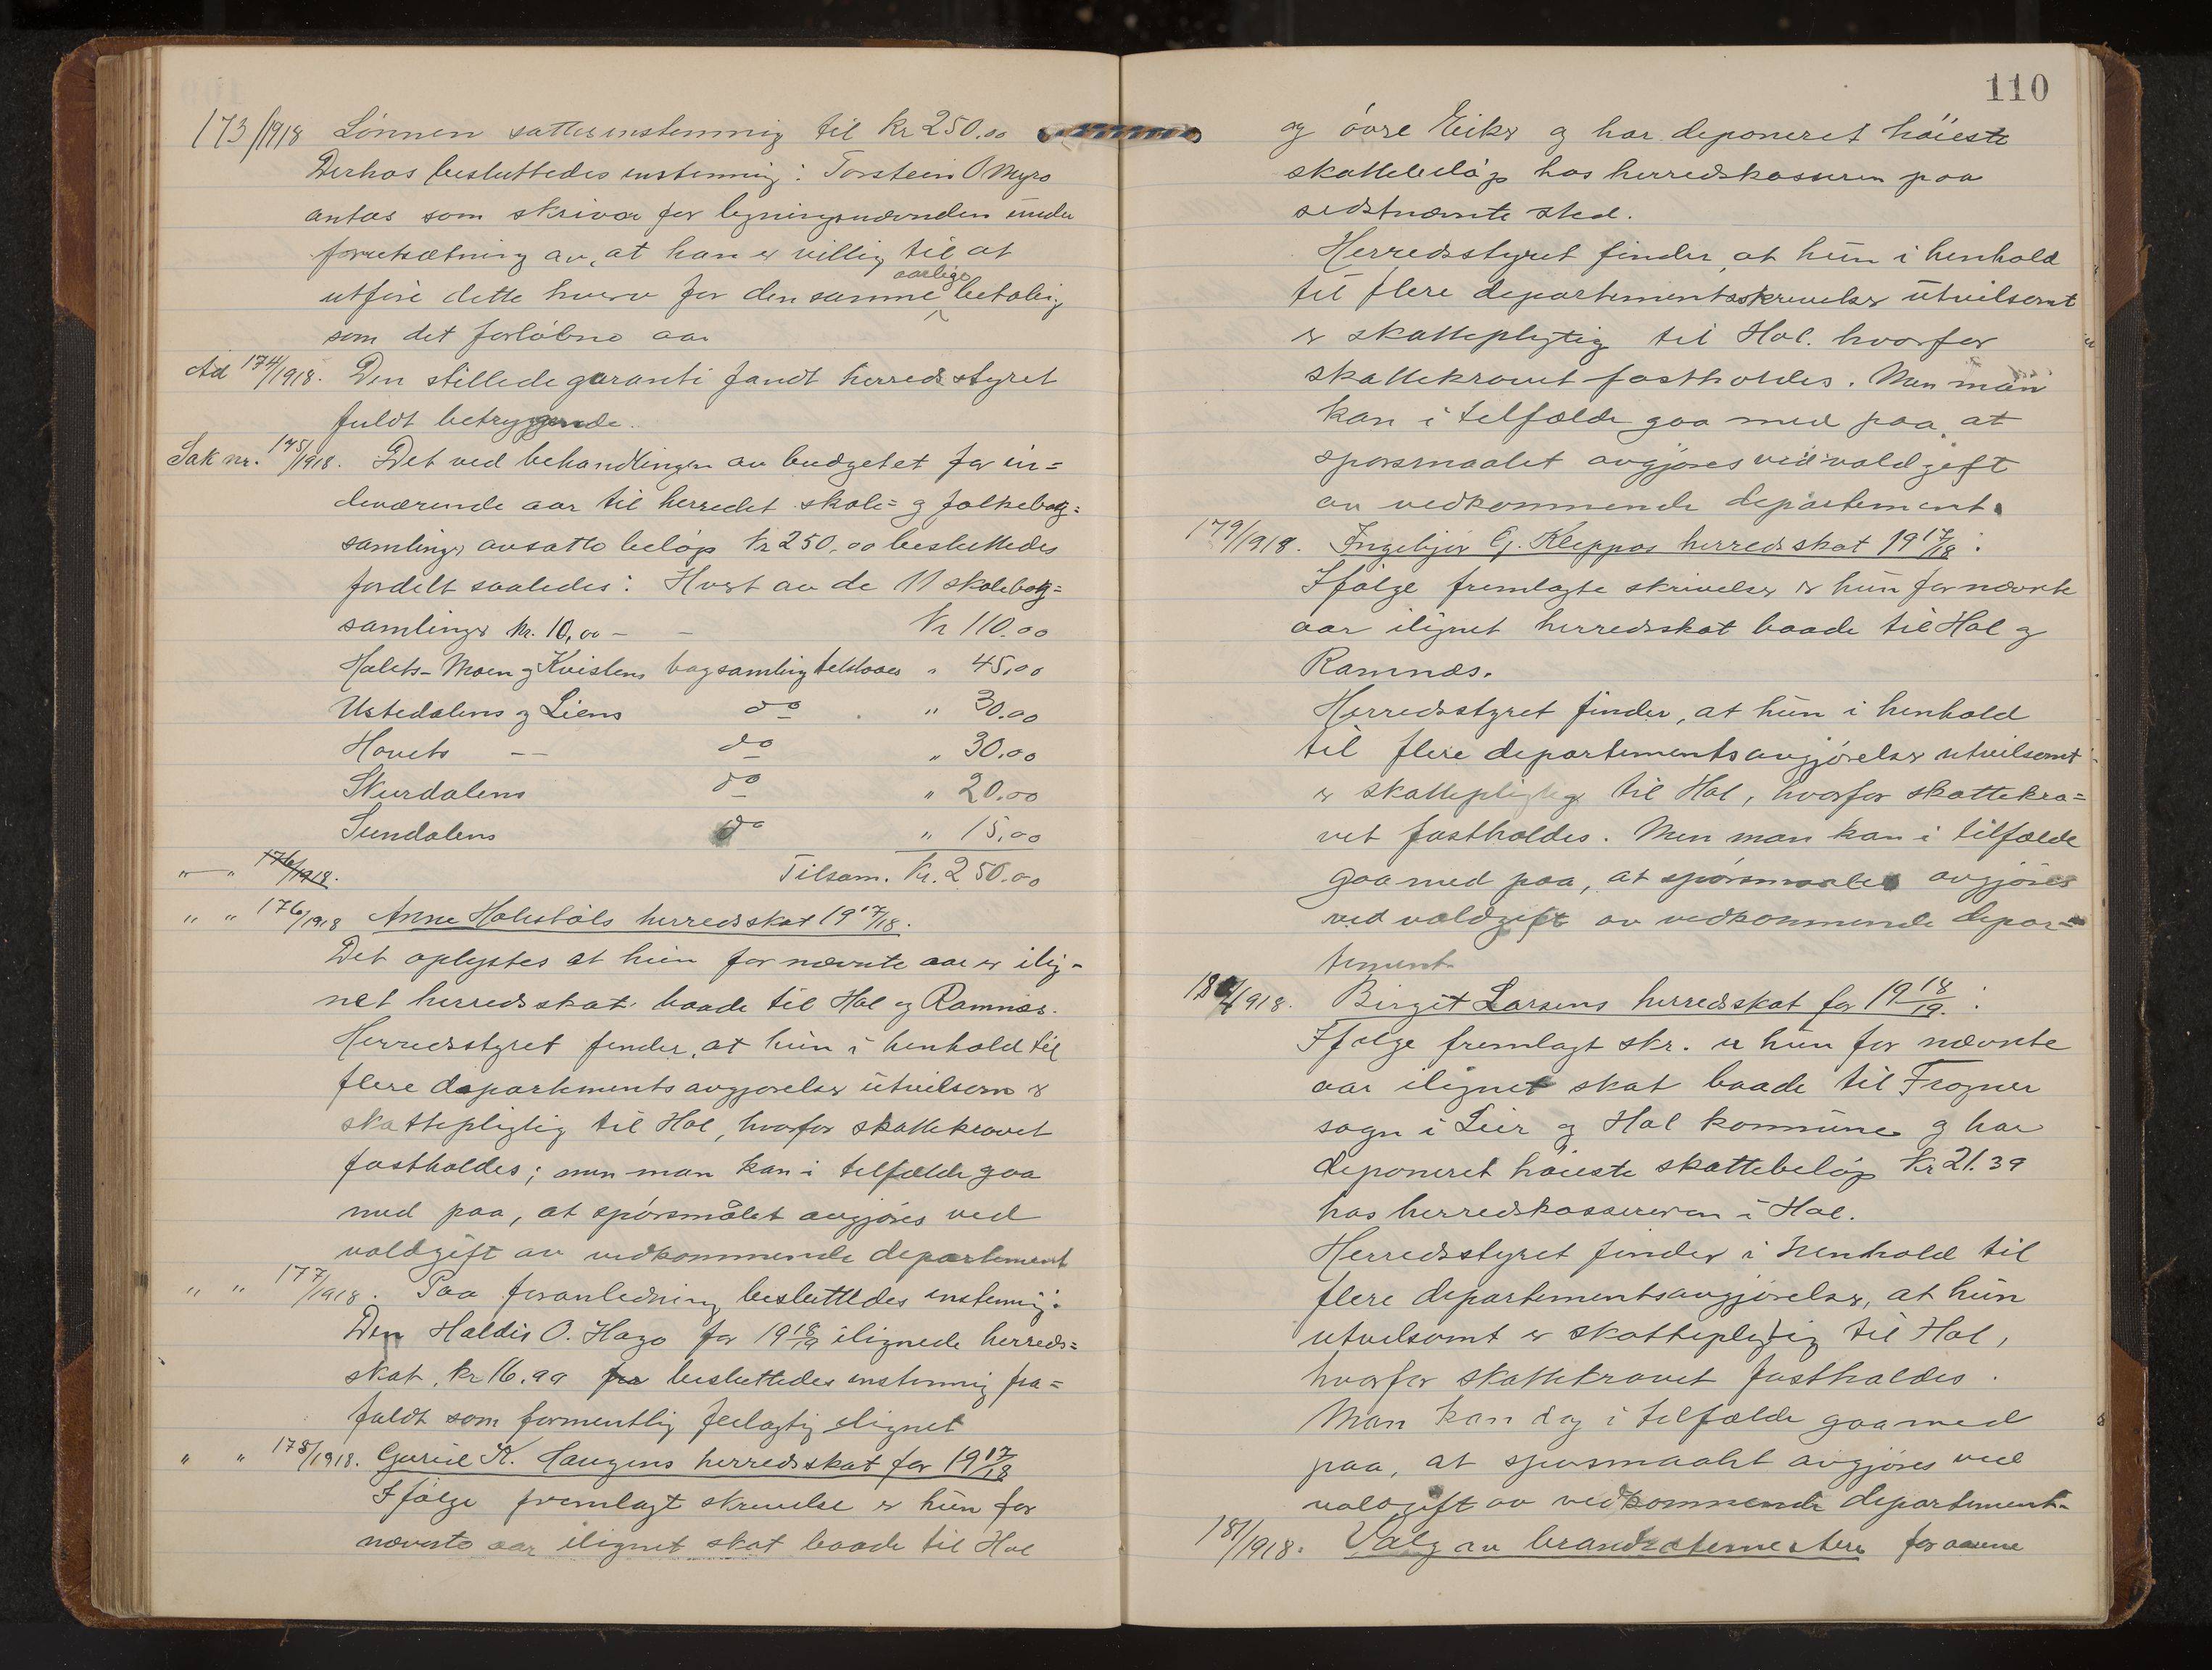 173/1918 Lönnen sattes enstemmig til kr 250.00
Derhos besluttedes enstemmig: Torstein O Myro
antas som skriver for ligningsnævnden under
forutsætning av, at han er villig til at
utföre dette hverv for den samme aarlige betaling
som det forløbne aar
Ad 174/1918. Den stillede garanti fandt herredsstyret
fuldt betryggende.
Sak nr. 175/1918. Det ved behandlingen av budgetet for in=
deværende aar til herredet skole= og folkebog=
samlinger avsatte beløp kr 250,00 besluttedes
fordelt saaledes: Hvert av de 11 skolebog=
samlinger kr. 10,00 - - Kr 110.00
Holets- Moen og Kvislens bogsamling tilstaaes " 45,00
Ustedalens og Liens do " 30.00
Hovets -- do " 30.00
Skurdalens do " 20.00
Sundalens do " 15,00
" " 176/1918. Tilsam. Kr. 250.00
" " 176/1918 Anne Holestöls herredsskat 1917/18.
Det oplystes at hun for nævnte aar er ilig-
net herredsskat baade til Hol og Ramnæs.
Herredsstyret finder, at hun i henhold til
flere departementsavgjørelser utvilsom er
skattepligtig til Hol, hvorfor skattekravet
fastholdes; men man kan i tilfælde gaa
med paa, at spörsmålet avgjöres ved
voldgift av vedkommende departement
" " 177/1918. Paa foranledning besluttedes enstemmig:
Den Haldis O. Hago for 1918/19 ilignede herreds=
skat, kr 16.99 fra besluttedes enstemmig fra=
faldt som formentlig feilagtig ilignet
" " 178/1918. Guriè K. Haugens herredsskat for 1917/18
Ifölge fremlagt skrivelse er hun for
nævnte aar ilignet skat baade til Hol
110
og övre Eiker og har deponeret höieste
skattebelöp hos herredskasseren paa
sidstnævnte sted.
Herredsstyret finder, at hun i henhold
til flere departementsskrivelser utvilsomt
er skattepligtig til Hol. hvorfor
skattekravet fastholdes. Men man
kan i tilfælde gaa med paa, at
sporsmaalet avgjöres ved voldgift
av vedkommende departement.
179/1918. Ingebjör G. Kleppos herredsskat 1917/18:
Ifölge fremlagte skrivelser er hun for nævnte
aar ilignet herredsskat baade til Hol og
Ramnæs.
Herredsstyret finder, at hun i henhold
til flere departementsavgjörelser utvilsomt
er skattepligtig til Hol, hvorfor skattekra=
vet fastholdes. Men man kan i tilfælde
gaa med paa, at spörsmaalet avgjöres
ved voldgift av vedkommende depar=
tement.
180/1918. Birgit Larsens herredsskat for 1918/19:
Ifølge fremlagt skr. er hun for nævnte
aar ilignet skat baade til Frogner
sogn i Lier og Hol kommune og har
deponeret höieste skattebelöp kr 21.39
hos herredskassereren i Hol.
Herredsstyret finder i henhold til
flere departementsavgjörelser, at hun
utvilsomt er skattepligtig til Hol,
hvorfor skattekravet fastholdes.
Man kan dog i tilfælde gaa med
paa, at spörsmaalet avgjöres ved
voldgift av vedkommende departement.
181/1918. Valg av brandstemestere for aarene